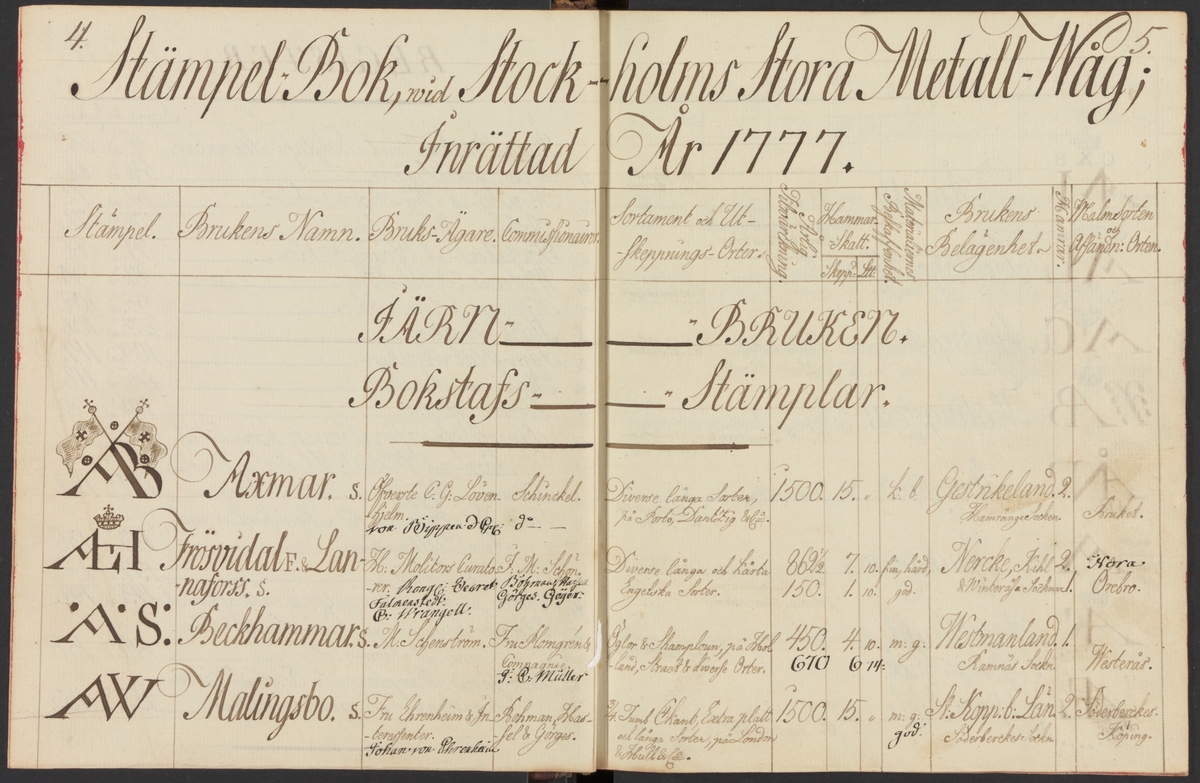 4.
5.
Stämpel-Bok, wid Stock-holms Stora Metall-Wåg;
Inrättad År 1777.
Stämpel.
Brukens Namn.
Bruks-Ägare.
Commissionairer
Sortament och Ut-
-skeppnings-Orter.
Årlig
Tilwärckning.
Hammar-
Skatt.
Skepp. Ltt:
Materialiernes
Beskaffenhet.
Brukens
Belägenhet.
Hamrar.
Malmsorten
och
JÄRN- - BRUKEN.
Bokstafs- - Stämplar.
AB
Axmar. S.
Öfverste C. G: Löven-
hjelm.
von Bippen
Schinckel.
do
Diverse långa Sorter,
på Porto, Dantzig &Ca.
1500. 15. „ k: b.
Gestrikeland. 2.
Hamrånge Socken.
Bruket.
ÆH
Frösvidal F. & Lan-
-naforss. S.
H: Molitors Curato-
rer.
Falckenstedt.
C: Wrangell.
J. M: Schön
Göges.
Diverse långa och korta
Engelska Sorter.
862½ 7. 10.
150. 1. 10. god.
Nercke, Kihl 2.
1.
Nora
Örebro.
A: S:
Beckhammar S.
M: Schenström.
Fru Almgrén &
Compagnie.
Müller
Öglor & Stamploun, på Hol
land, Straet & diverse Orter.
450. 4. 10. m: g:
670 6 14:
Westmanland. 1.
Ramnäs Sockn.
Westerås.
AW
Malingsbo. S.
Fru Ehrenheim & In-
-teressenter.
Johan von Ehrenheim
Rohman, Has-
-sel & Görges.
och långa Sorter, på London
& Hull &Ca.
1500. 15. „ m: g:
god.
St: Kopp: b: Län. 2.
Söderberckes Sockn.
Söderberckes-
Köping.